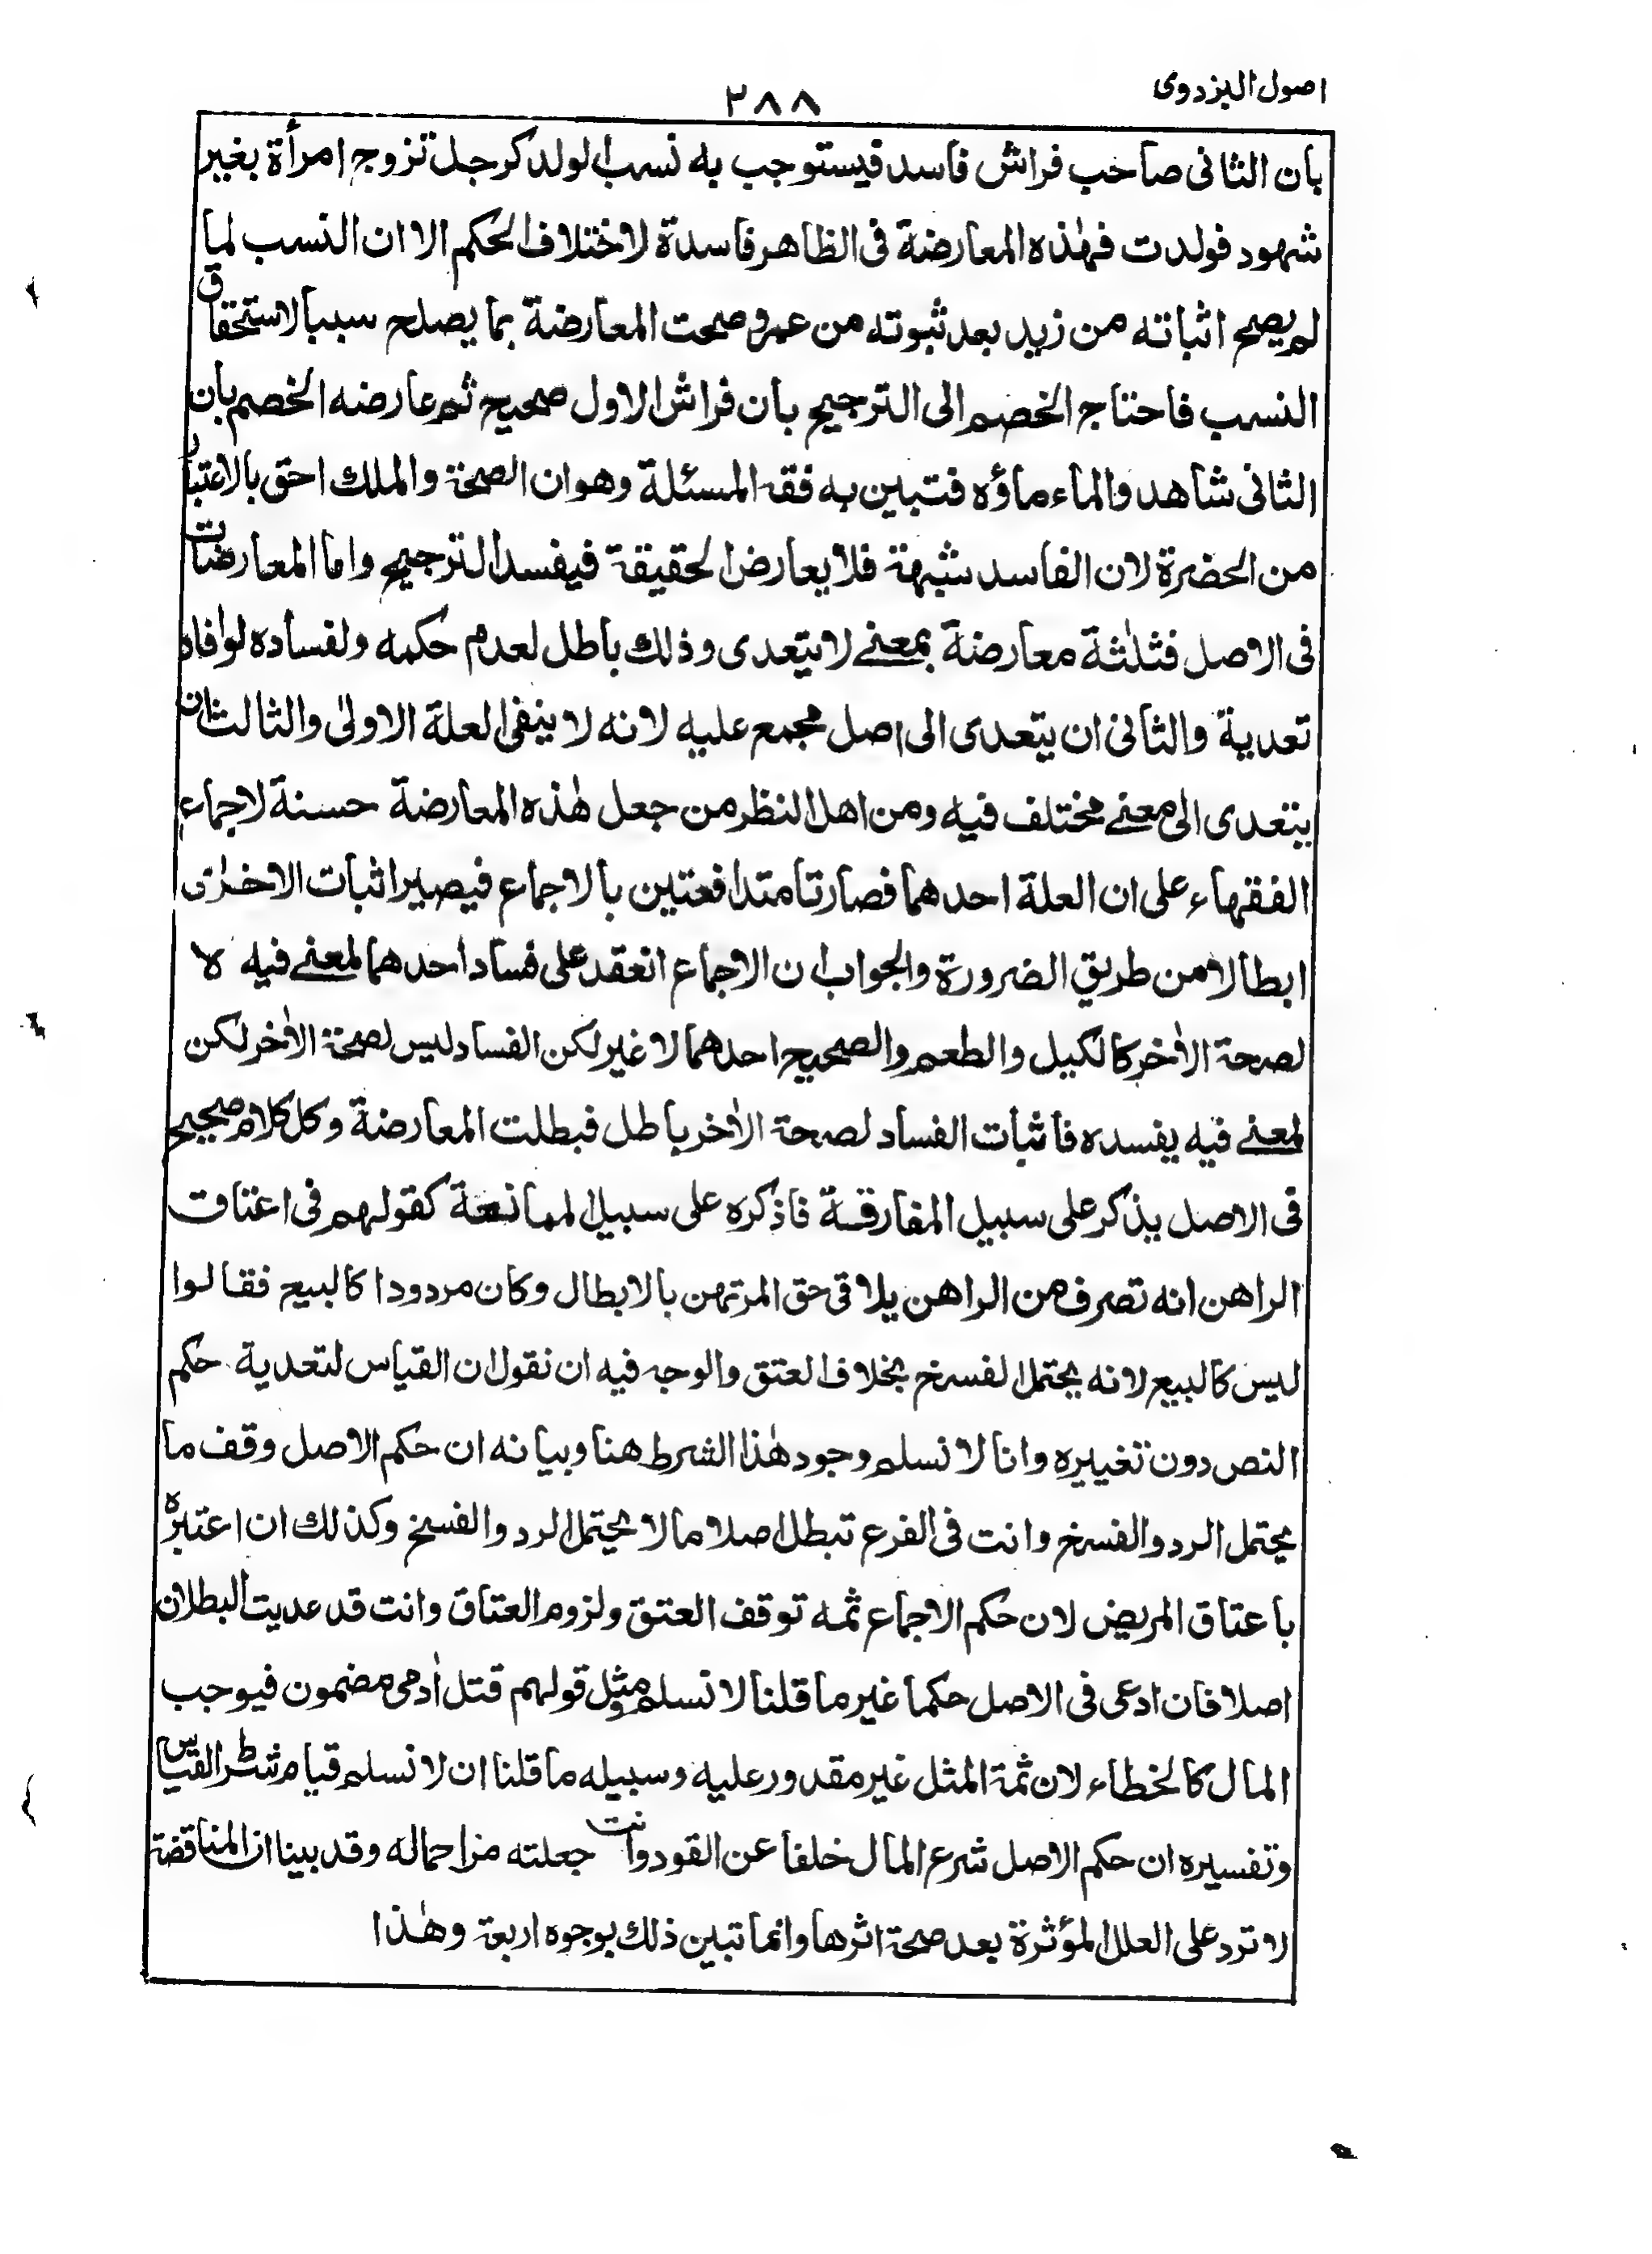 اصول البزدوى
٢٨٨
بان الثانى صاحب فراش فاسد فيستوجب به نسب الولد كرجل تزوج امرأة بغير
شهود فولدت فهٰذه المعارضة فى الظاهر فاسدة لاختلاف الحكم الا ان النسب لما
لم يصح اثباته من زيد بعد ثبوته من عمرو صحت المعارضة بما يصلح سببا لاستحقاق
النسب فاحتاج الخصم الى الترجيح بان فراش الاول صحيح ثم عارضه الخصم بان
الثانى شاهد والماء ماؤه فتبين به فقه المسئلة وهو ان الصحة والملك احق بالاعتبار
من الحضرة لان الفاسد شبهة فلا يعارض الحقيقة فيفسد الترجيح واما المعارضات
فى الاصل فثلٰثة معارضة بمعنے لا يتعدى وذلك باطل لعدم حكمه ولفساده لو افاد
تعدية والثانى ان يتعدى الى اصل مجمع عليه لانه لا ينفى العلة الاولىٰ والثالث ان
يتعدى الى معنے مختلف فيه ومن اهل النظر من جعل هٰذه المعارضة حسنة لاجماع
الفقهاء على ان العلة احدهما فصارتا متدافعتين بالاجماع فيصير اثبات الاخرٰى
ابطالا من طريق الضرورة والجواب ان الاجماع انعقد على فساد احدهما لمعنے فيه لا
لصحة الاٰخر كالكيل والطعم والصحيح احدهما لا غير لكن الفساد ليس لصحة الاٰخر لكن
لمعنے فيه يفسده فاثبات الفساد لصحة الاٰخر باطل فبطلت المعارضة وكل كلام صحيح
فى الاصل يذكر على سبيل المفارقة فاذكره على سبيل الممانعة كقولهم فى اعتاق
الراهن انه تصرف من الراهن يلاقى حق المرتهن بالابطال وكان مردودا كالبيع فقالوا
ليس كالبيع لانه يحتمل الفسخ بخلاف العتق والوجه فيه ان نقول ان القياس لتعدية حكم
النص دون تغييره وانا لا نسلم وجود هٰذا الشرط هنا وبيانه ان حكم الاصل وقف ما
يحتمل الرد والفسخ وانت فى الفرع تبطل اصلا ما لا يحتمل الرد والفسخ وكذلك ان اعتبره
باعتاق المريض لان حكم الاجماع ثمه توقف العتق ولزوم العتاق وانت قد عديت البطلان
اصلا فان ادعى فى الاصل حكما غير ما قلنا لا نسلم ومثل قولهم قتل اٰدمى مضمون فيوجب
المال كالخطاء لان ثمة المثل غير مقدور عليه وسبيله ما قلنا ان لا نسلم قيام شرط القياس
وتفسيره ان حكم الاصل شرع المال خلفا عن القود وانت جعلته مزاحماله وقد بينا ان المناقضة
لا ترد على العلل المؤثرة بعد صحة اثرها وانما تبين ذلك بوجوه اربعة وهٰذا